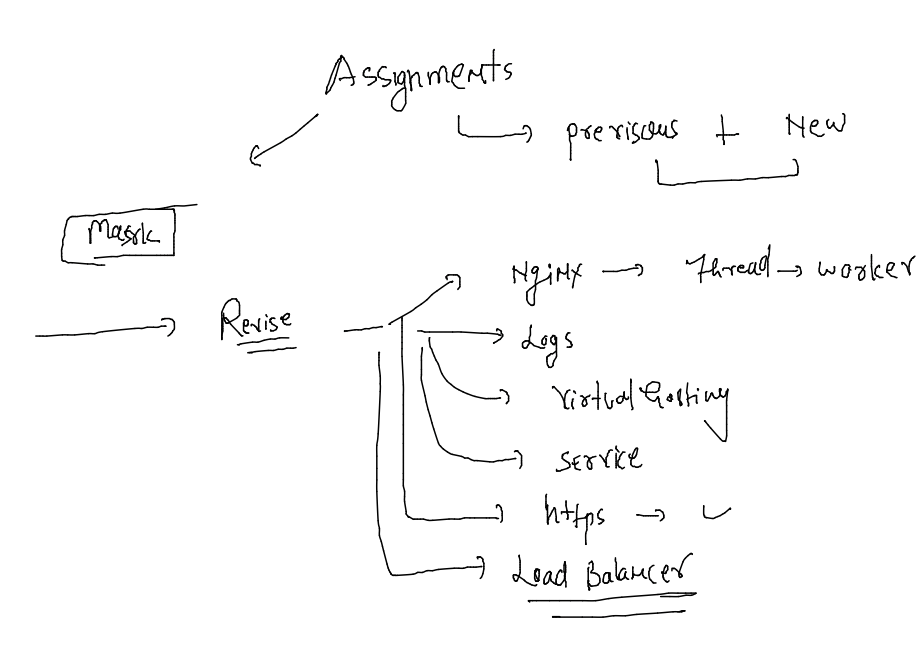 Assignments
previsous + New
Masrk
Nginx → Thread → worker
Revise
Logs
Virtual Hosting
Service
https →
Load Balancer